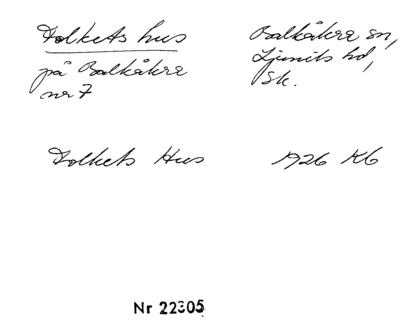 Folkets hus
på Balkåkra
nr 7
Balkåkra sn,
Ljunits hd,
Sk.
Folkets Hus
1926 Kb
Nr 22305